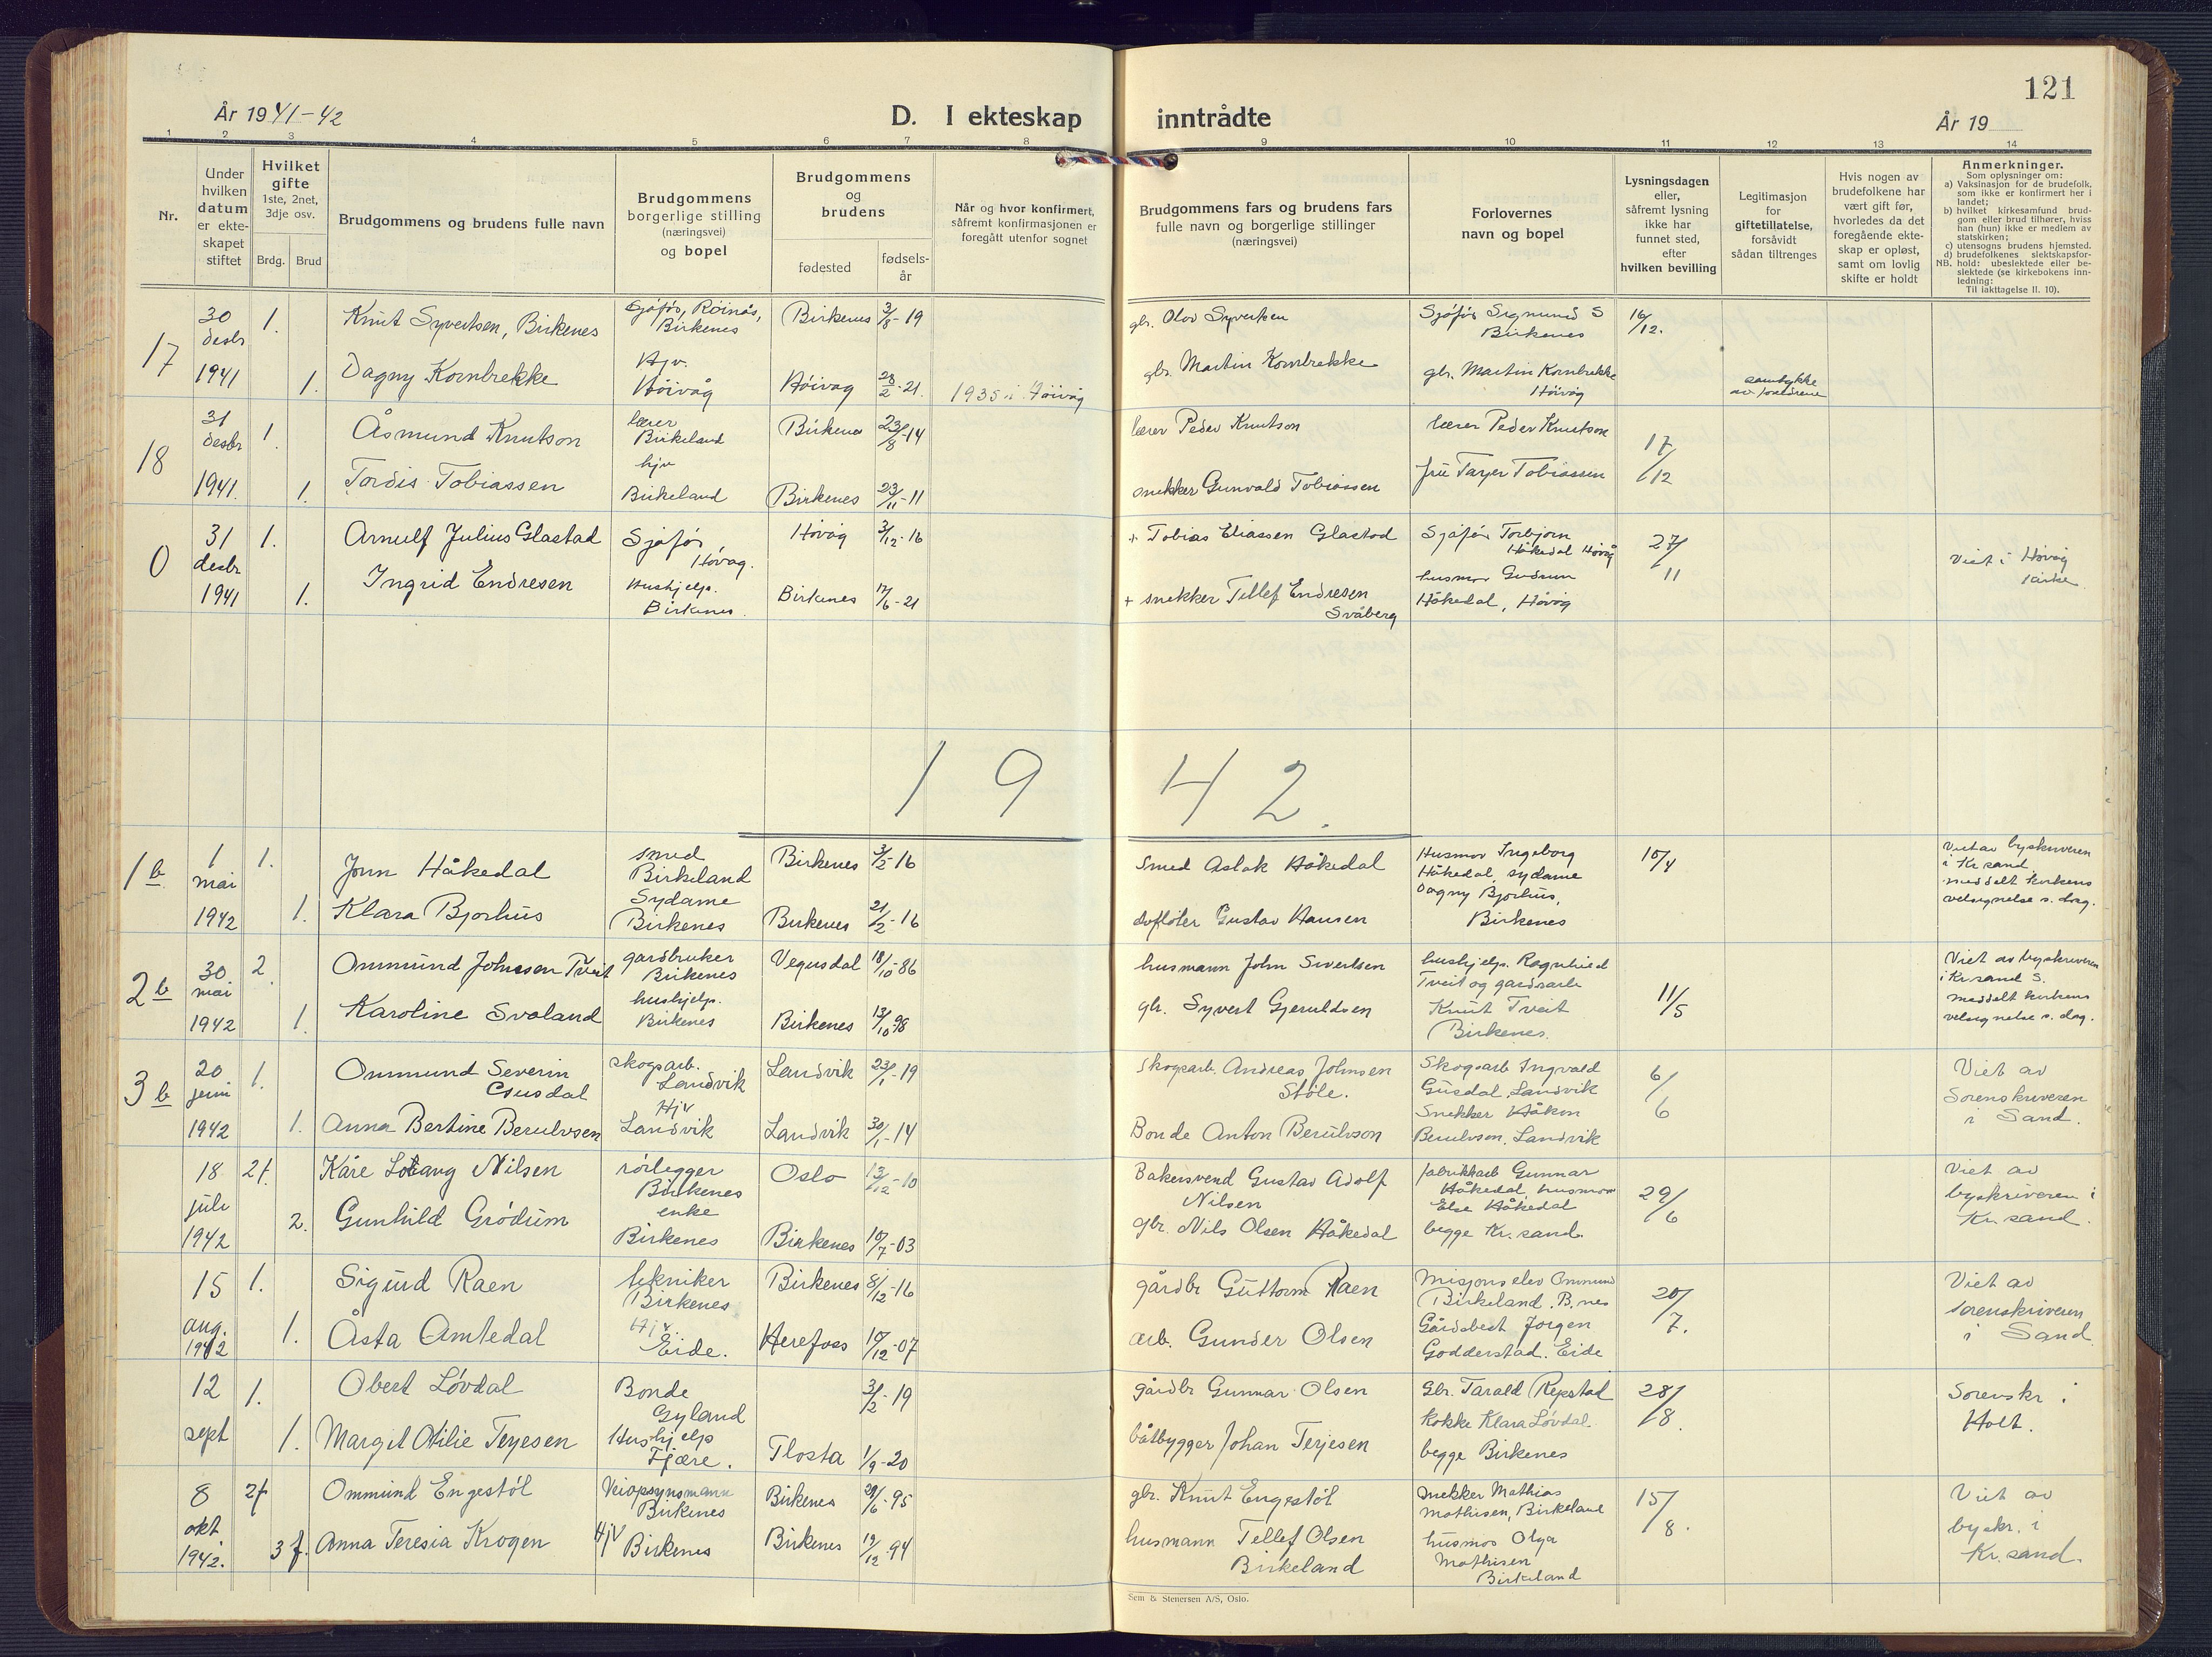 121
År 1941-42
D. I ekteskap
inntrådte
År 19
1 2 3 4 5 6 7 8 9 10 11 12 13 14
Nr.
Under
hvilken
datum
er ekte-
skapet
stiftet
Hvilket
gifte
1ste, 2net,
3dje osv.
Brdg.
Brud
Brudgommens og brudens fulle navn
Brudgommens
borgerlige stilling
(næringsvei)
og bopel
Brudgommens
og
brudens
fødested
fødsels-
år
Når og hvor konfirmert,
såfremt konfirmasjonen er
foregått utenfor sognet
Brudgommens fars og brudens fars
fulle navn og borgerlige stillinger
(næringsvei)
Forlovernes
navn og bopel
Lysningsdagen
eller,
såfremt lysning
ikke har
funnet sted,
efter
hvilken bevilling
Legitimasjon
for
giftetillatelse,
forsåvidt
sådan tiltrenges
Hvis nogen av
brudefolkene har
vært gift før,
hvorledes da det
foregående ekte-
skap er opløst,
samt om lovlig
skifte er holdt
Anmerkninger.
Som oplysninger om:
a) Vaksinasjon for de brudefolk,
som ikke er konfirmert her i
landet;
b) hvilket kirkesamfund brud-
gom eller brud tilhører, hviss
han (hun) ikke er medlem av
statskirken;
c) utensogns brudens hjemsted.
d) brudefolkenes slektskapsfor-
NB. hold: ubeslektede eller be-
slektede (se kirkebokens inn-
ledning:
Til iakttagelse II. 10).
17
30 desbr 1941
1. Knut Syvertsen, Birkenes
Sjåfør, Røinås,
Birkenes
Birkenes 3/8-19
gbr. Olav Syvertsen
Sjåfør Sigmund S
Birkenes
16/12.
1. Dagny Kornbrekke
Hjv.
Høivåg
Høivåg 28/2-21. 1935 i Høivåg
gbr. Martin Kornbrekke
gbr. Martin Kornbrekke
Høivåg
samtykke
av foreldrene
18
31 desbr 1941.
1. Åsmund Knutson
lærer
Birkeland
Birkenes 23/8-14
lærer Peder Knutson
lærer Peder Knutson
17/12
1. Tordis Tobiassen
hjv
Birkeland
Birkenes 23/11-11
snekker Gunvald Tobiassen
fru Tarjer Tobiassen
0
31 desbr 1941
1. Arnulf Julius Glastad
Sjåfør,
Høvåg.
Høvåg 3/12-16
+ Tobias Eliassen Glastad
Sjåfør Torbjørn
Håkedal Høvåg
27/11
Viet i Høvåg
kirke
1. Ingrid Endresen
Hushjelp.
Birkenes.
Birkenes 17/6-21
+ snekker Tellef Endresen
Svåberg
husmor Gudrun
Håkedal, Høvåg
1942.
1 b
1 mai 1942
1. Jon Håkedal
smed
Birkeland
Birkenes 3/2-16
Smed Aslak Håkedal
Husmor Ingeborg
Håkedal, sydame
Dagny Bjorhus,
Birkenes
10/4
Viet av byskriveren
i Kr.sand.
meddelt kirkens
velsignelse s. dag.
1. Klara Bjorhus
Sydame
Birkenes
Birkenes 21/2-16
Gustav Hansen
2 b
30 mai 1942
2. Ommund Johnsen Tveit
gardbruker
Birkenes
Vegusdal 18/10-86
husmann John Sivertsen
hushjelp. Ragnhild
Tveit og gardsarb
Knut Tveit
Birkenes.
11/5
Viet av byskriveren
i Kr.sand S.
meddelt kirkens
velsignelse s. dag.
1. Karoline Svaland
hushjelp.
Birkenes
Birkenes 13/10-98
gbr. Syvert Gjeruldsen
3 b
20 juni 1942
1. Ommund Severin
Gusdal
skogsarb.
Landvik
Landvik 23/1-19
Skogsarb. Andreas Johnsen
Støle.
Skogsarb Ingvald
Gusdal, Landvik
Snekker Håkon
Berulvson, Landvik
6/6
Viet av
Sorenskriveren
i Sand.
1. Anna Bertine Berulvsen
Hjv
Landvik
Landvik 30/1-14
Bonde Anton Berulvson
18 juli 1942
2f. Kåre Nilsen
rørlegger
Birkenes
Oslo 13/12-10
Bakersvend Gustav Adolf
Nilsen
fabrikkarb Gunnar
Håkedal, husmor
Else Håkedal
begge Kr.sand.
29/6
Viet av
byskriveren i
Kr.sand.
2. Gunhild Grødum
enke
Birkenes
Birkenes 10/7-03
gbr. Nils Olsen Håkedal
15 aug. 1942
1. Sigurd Raen
tekniker
Birkenes
Birkenes 8/12-16
gårdbr Guttorm Raen
Misjonselev Ommund
Birkeland, B.nes
Gårdsbest Jørgen
Godderstad. Eide
20/7.
Viet av
sorenskriveren
i Sand
1. Åsta Amtedal
Hjv
Eide.
Herefoss 10/12-07
arb. Gunder Olsen
12 sept
1. Obert Løvdal
Bonde
Gyland
3/2-19
gårdbr Gunnar Olsen
Gbr. Tarald Repstad
kokke Klara Løvdal.
begge Birkenes
28/8.
Sorenskr i
Holt.
1. Margit Otilie Terjesen
Hushjelp
Fjære.
Flosta 1/9-20
båtbygger Johan Terjesen
8 okt 1942.
2f Ommund Engestøl
Veiopsynsmann
Birkenes
Birkenes 29/6-95
gbr. Knut Engestøl
snekker Mathias
Mathisen, Birkeland
husmor Olga
Mathisen
Birkeland
15/8.
Viet av
byskr. i
Kr.sand.
3 f. Anna Teresia Krogen
Hjv Birkenes
Birkenes 12/12-94
husmann Tellef Olsen
Birkeland
Sem & Stenersen A/S, Oslo.